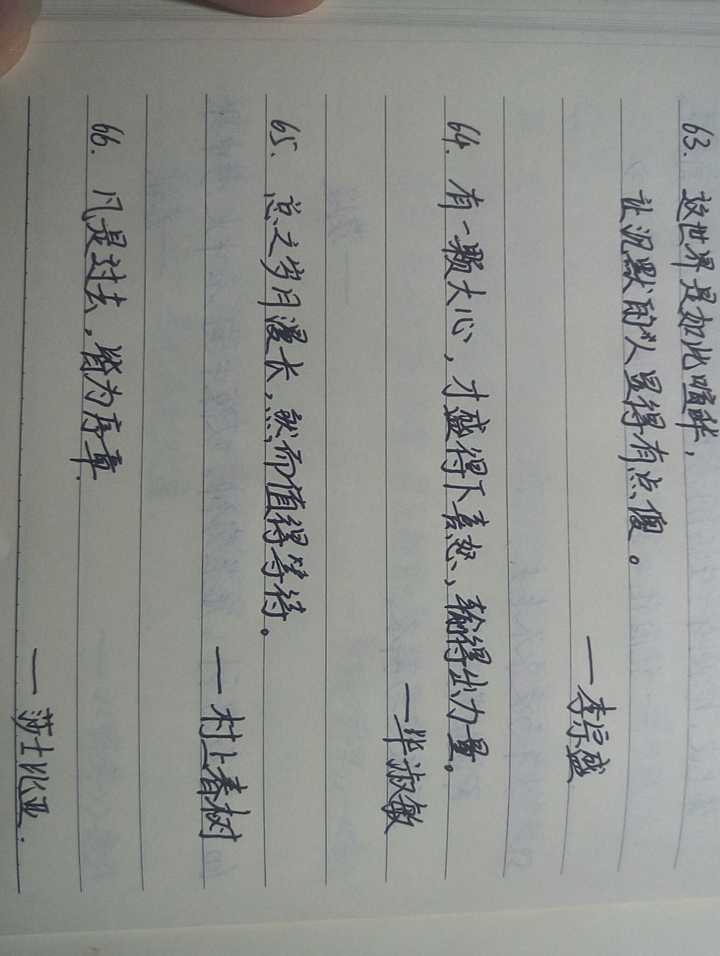 63. 这世界是如此喧哗,
让沉默的人显得有点傻。
——李宗盛
64. 有一颗大心,才盛得下喜怒,输得出力量。
——毕淑敏
65. 总之岁月漫长,然而值得等待。
——村上春树
66. 凡是过去,皆为序章.
——莎士比亚.